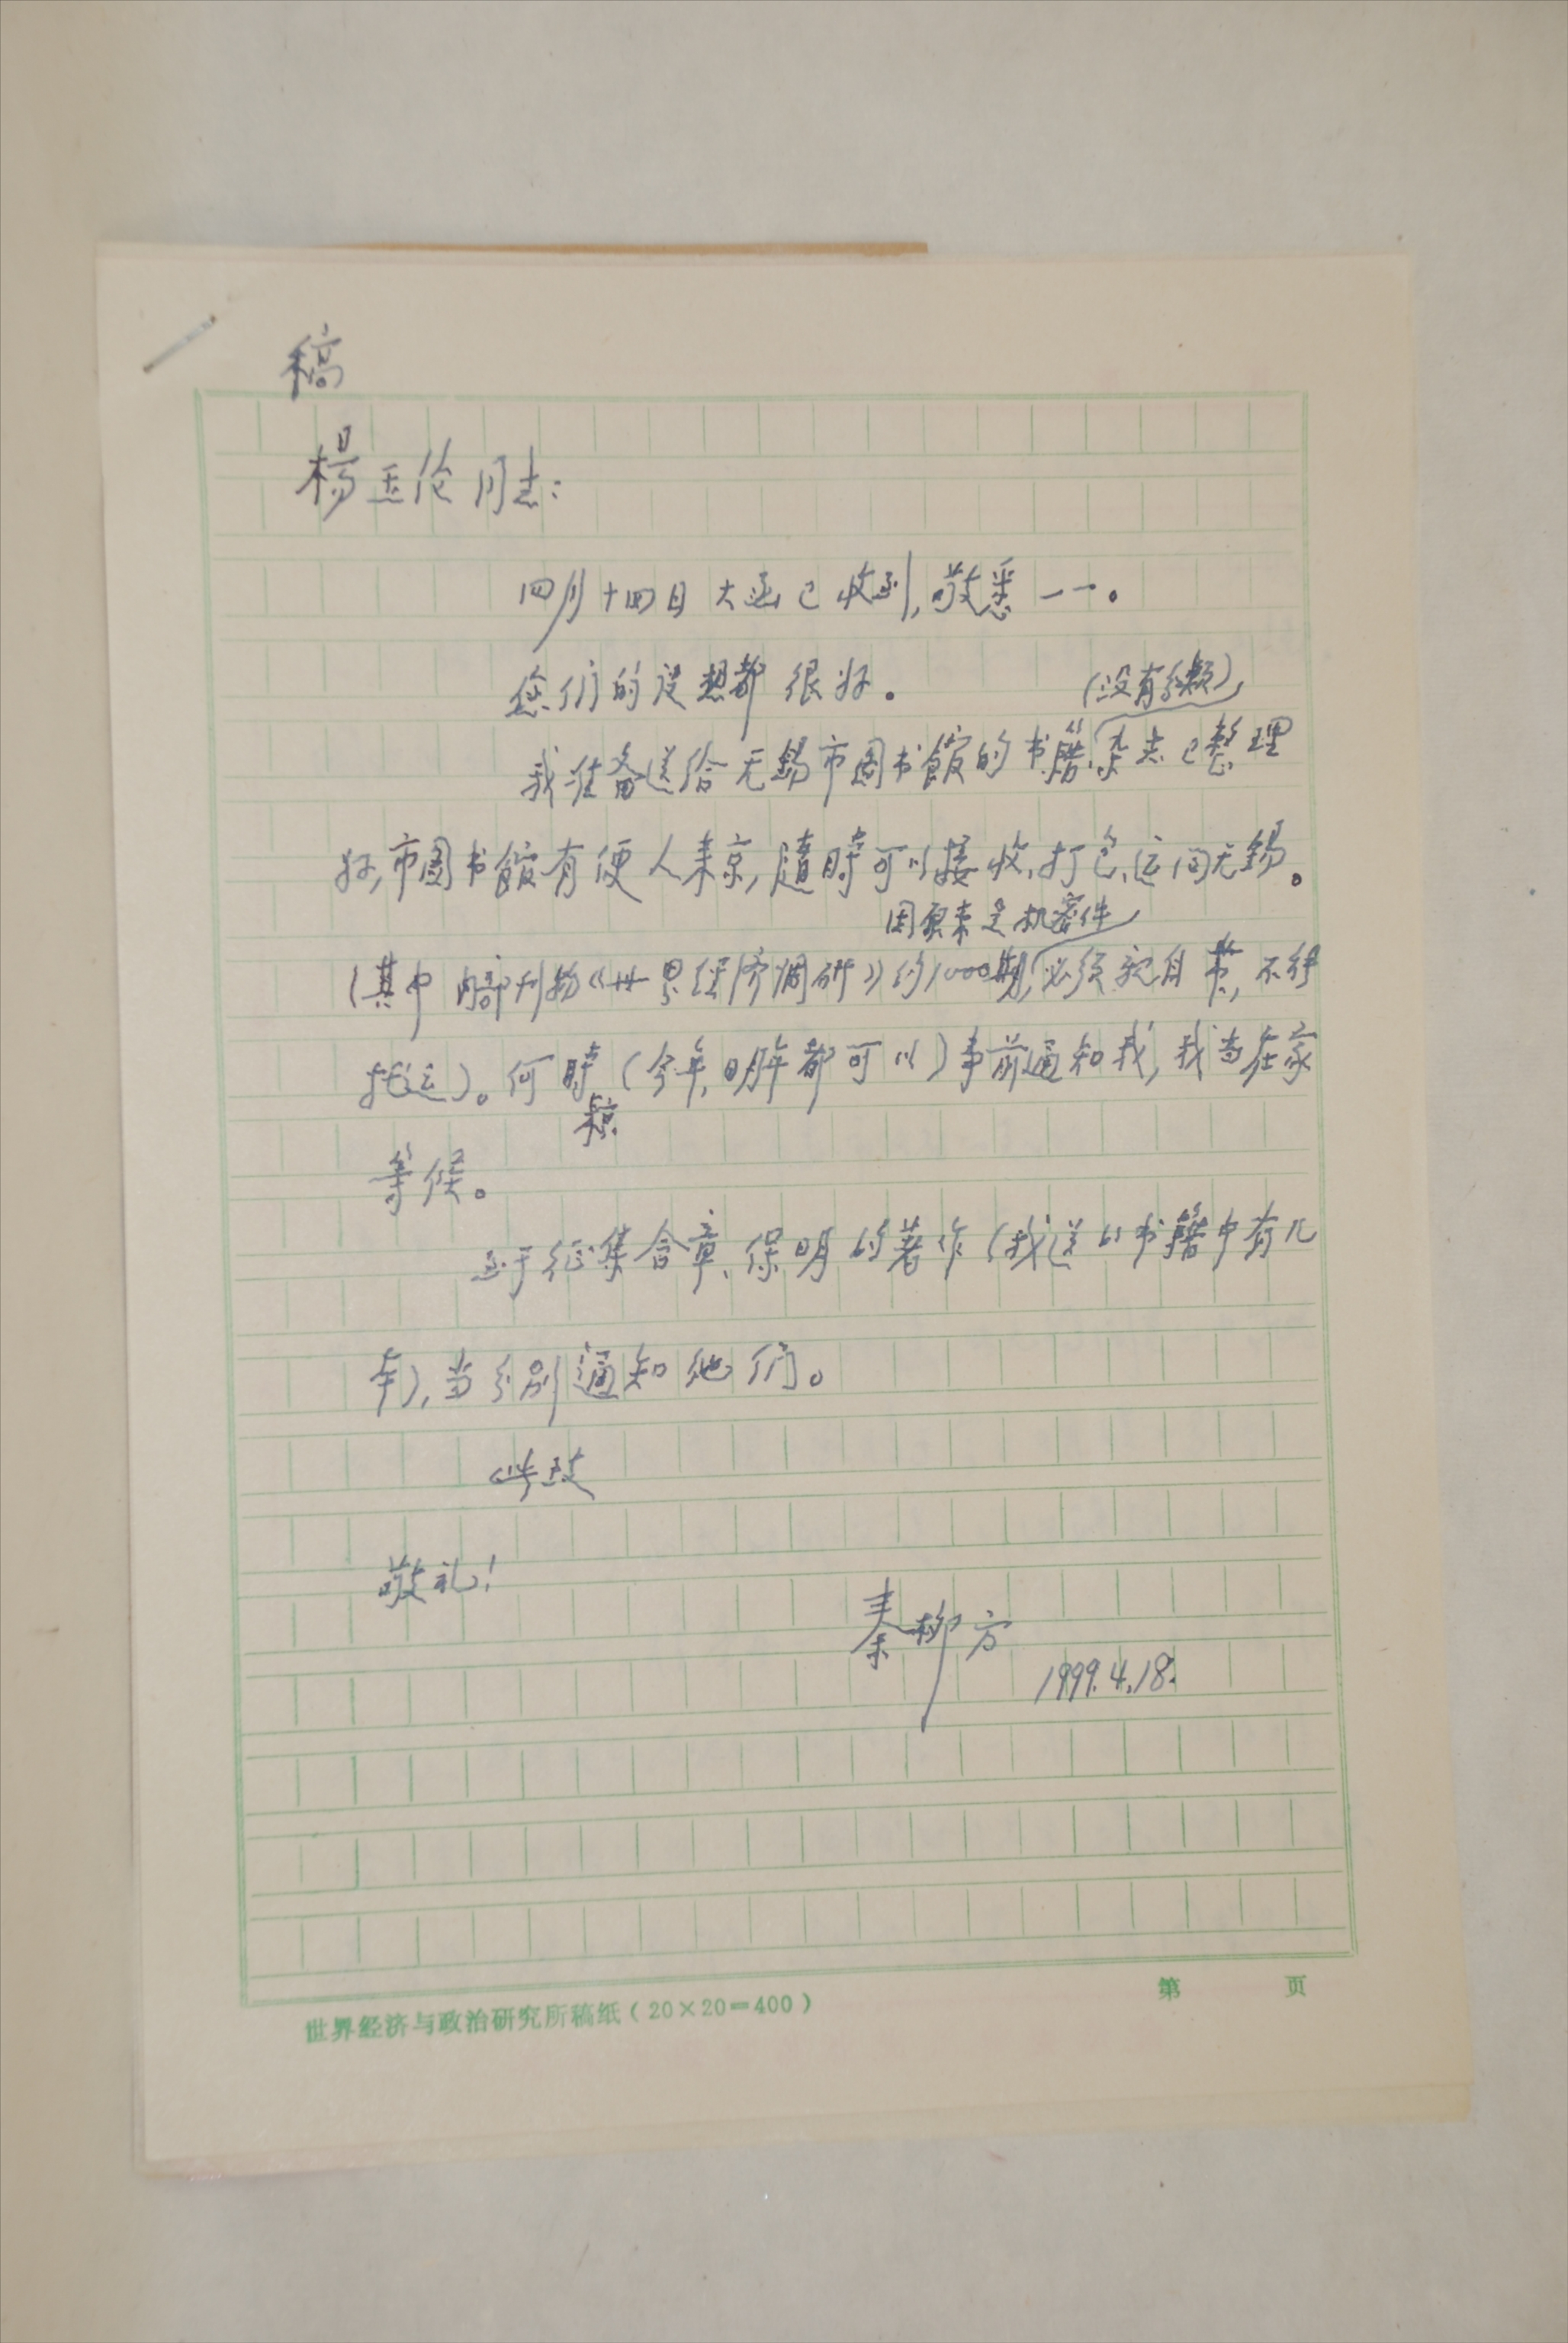 稿
楊玉伦同志:
四月十四日大函已收到,敬悉一一。
您们的设想都很好。
(没有分类)
我准备送给无锡市图书館的书籍、杂志已整理
好,市图书館有便人来京,隨時可以接收、打包、运回无锡。
因原来是机密件
(其中内部刊物《世界经济调研》约1000期,必须親自带,不得
托运)。何時(今年、明年都可以)事前通知我,我当在家
来京
等候。
至于征集含章、保明的著作(我送的书籍中有几
本),当分别通知他们。
此致
敬礼!
秦柳方
1999.4.18.
世界经济与政治研究所稿纸(20×20=400)
第 页